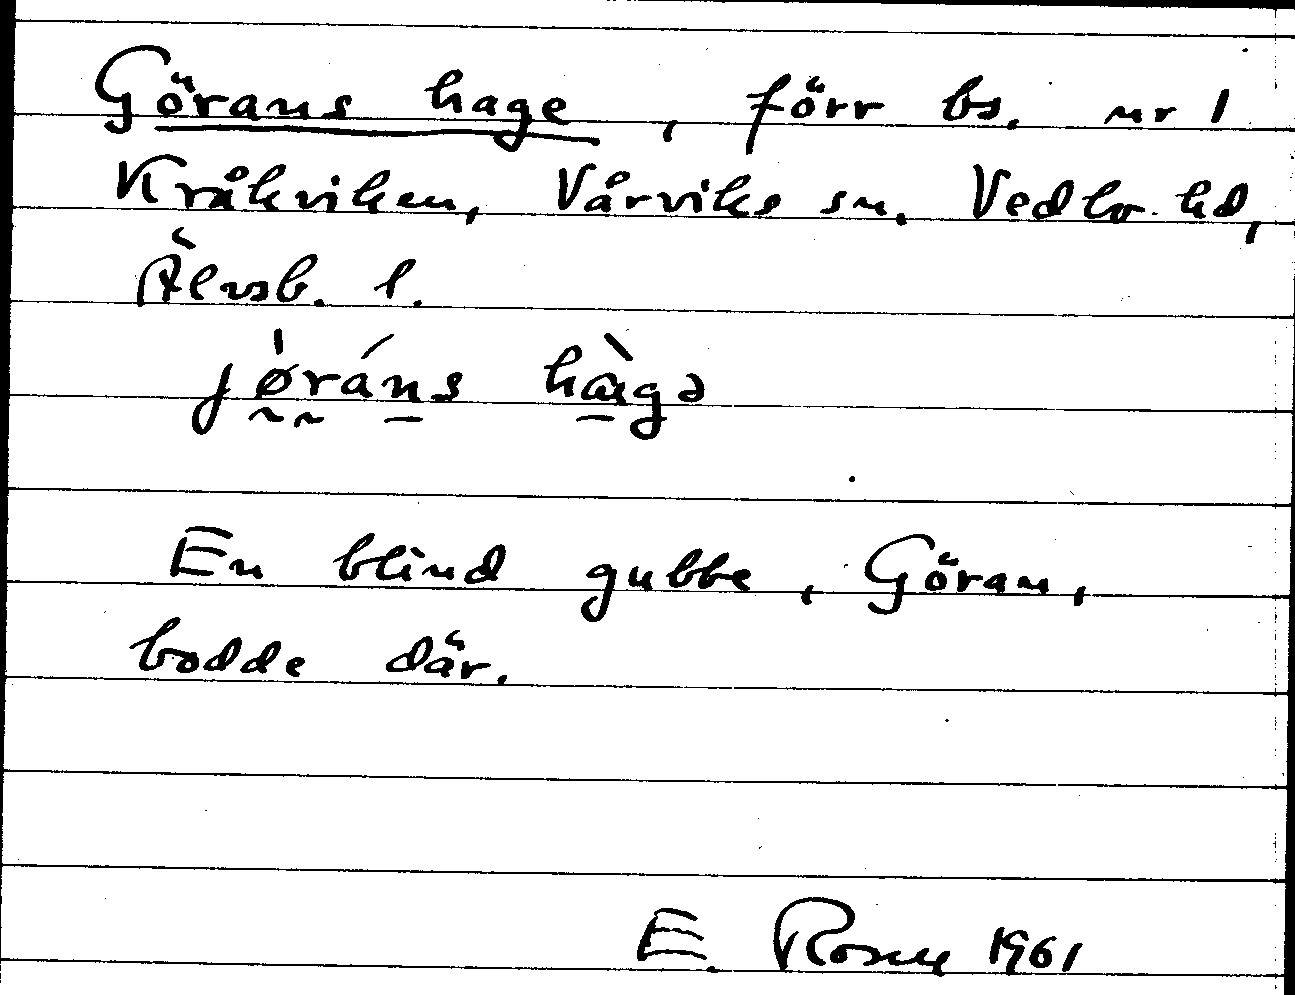 Görans hage, förr bs. nr 1
Kråkviken, Vårviks sn. Vedbo hd,
Älvsb. l.
jøráns hàgə
En blind gubbe, Göran,
bodde där.
E. 1961